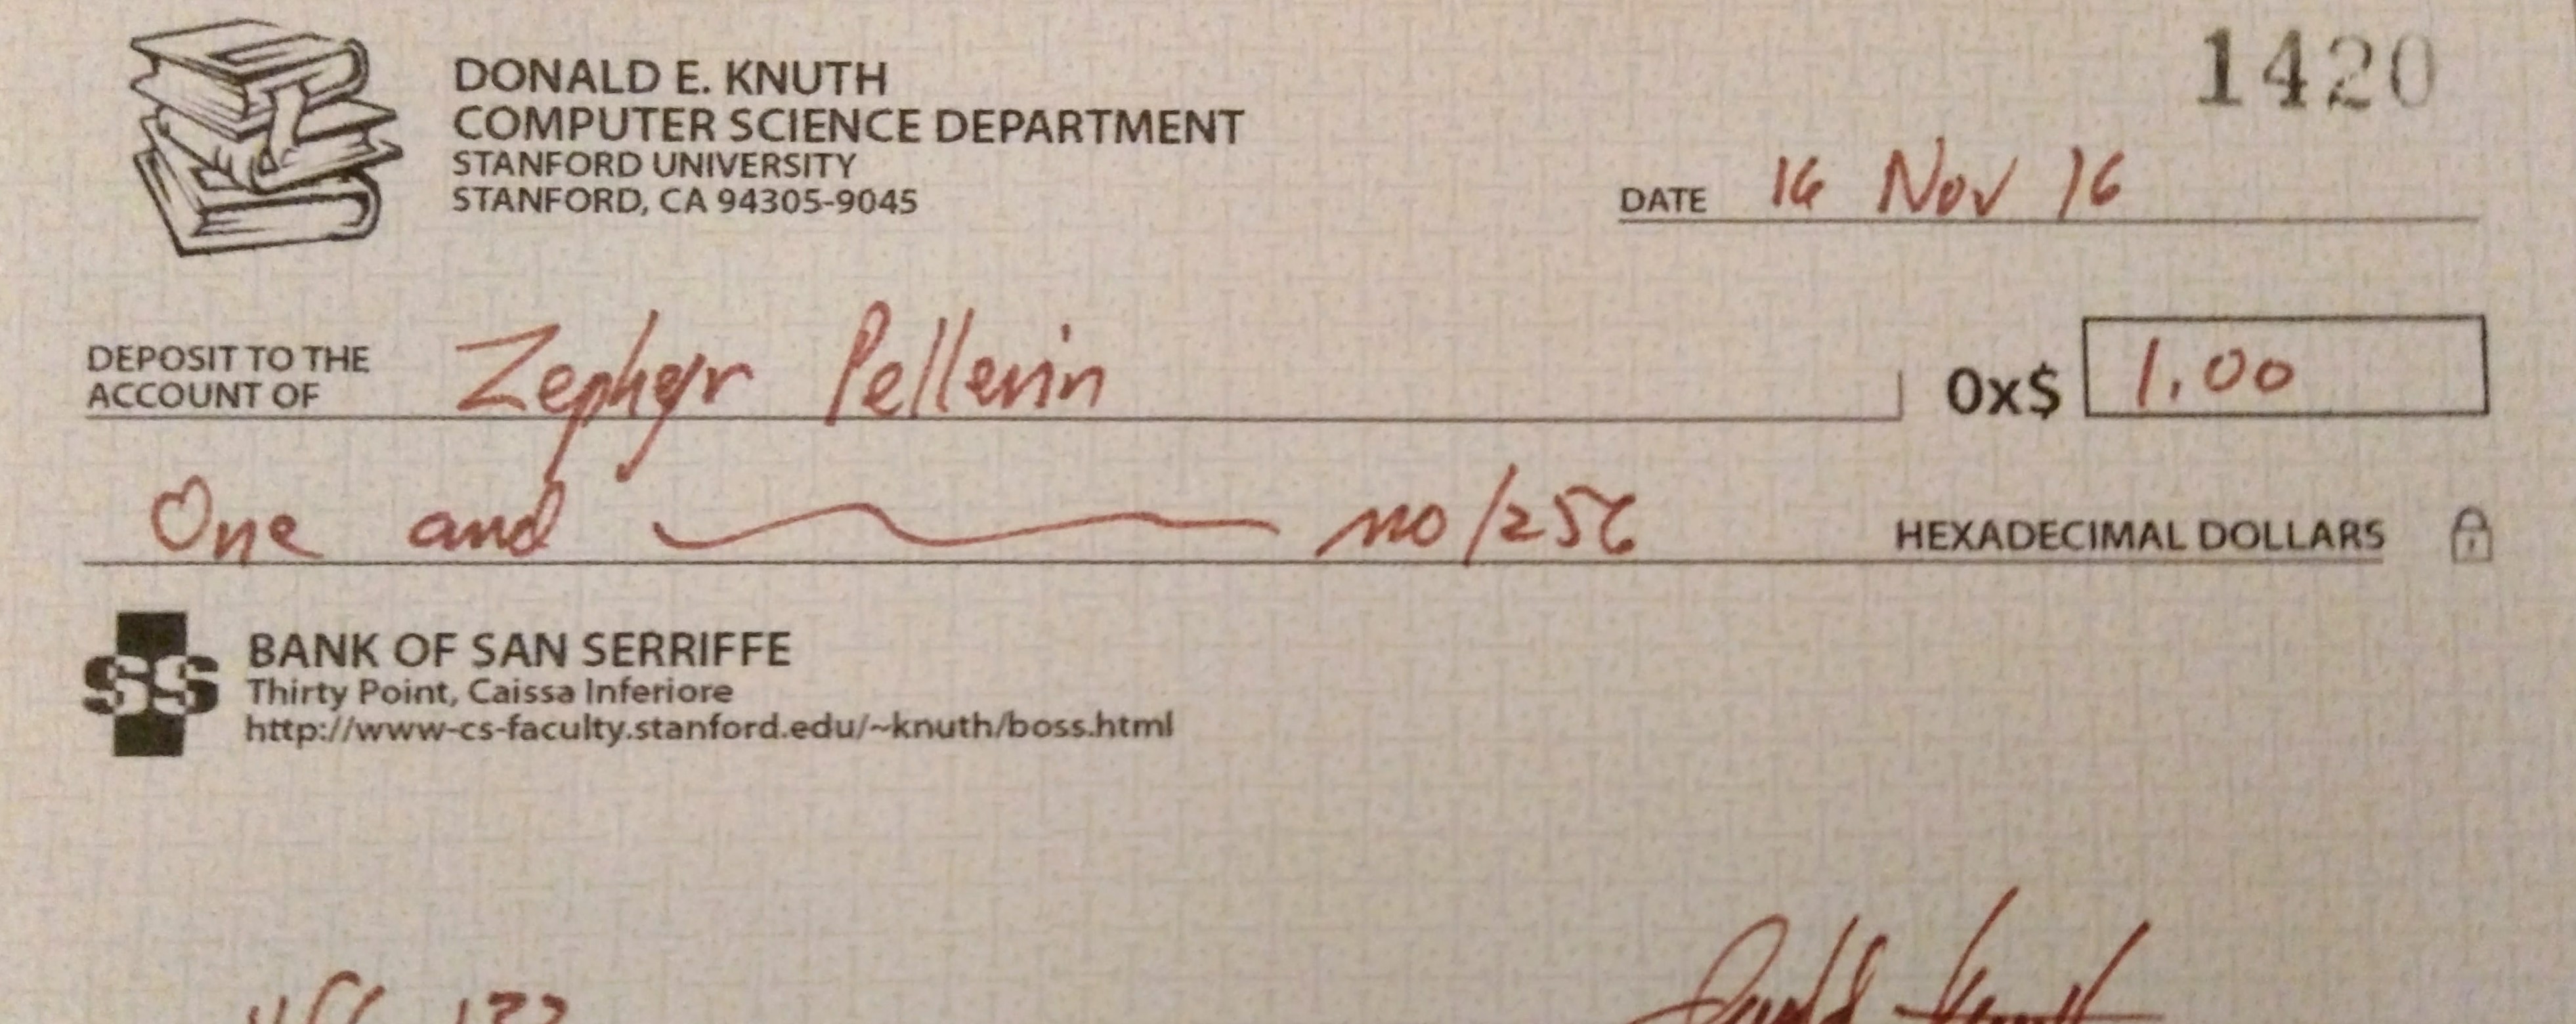 1420
DONALD E. KNUTH
COMPUTER SCIENCE DEPARTMENT
STANFORD UNIVERSITY
STANFORD, CA 94305-9045
DATE 16 Nov 16
DEPOSIT TO THE
ACCOUNT OF Zephyr Pellerin 0x$ 1.00
One and no/256 HEXADECIMAL DOLLARS
SS
BANK OF SAN SERRIFFE
Thirty Point, Caissa Inferiore
http://www-cs-faculty.stanford.edu/~knuth/boss.html
Donald Knuth